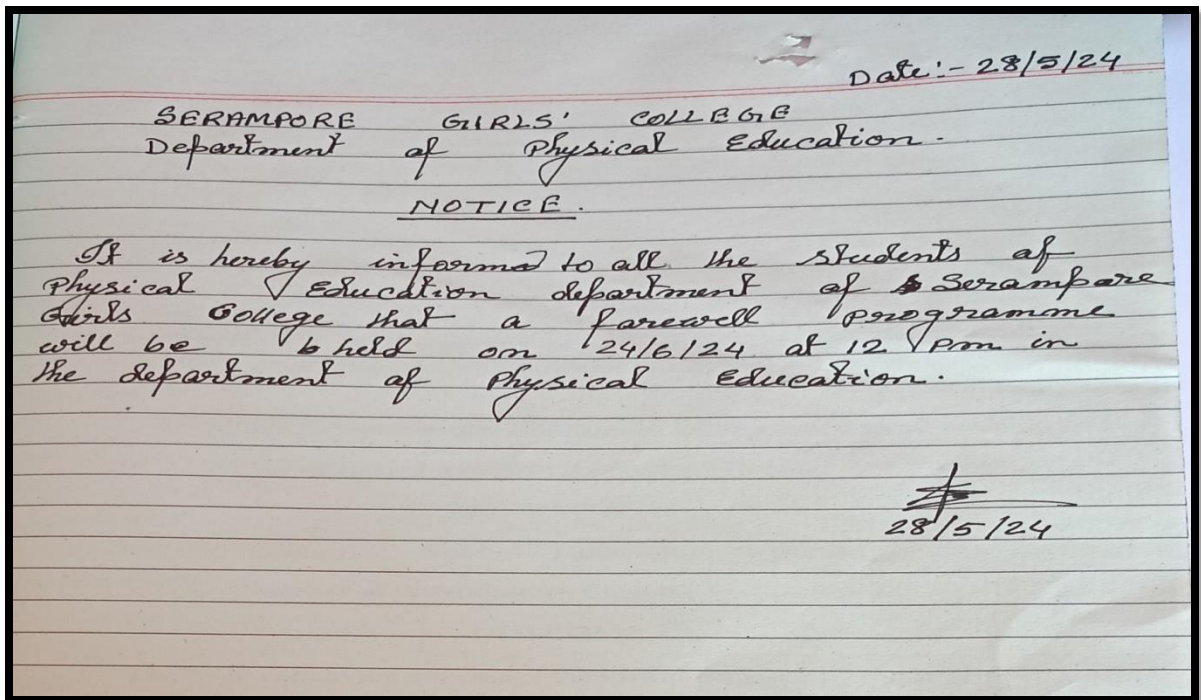 Date:- 28/5/24
SERAMPORE GIRLS' COLLEGE
Department of Physical Education.
NOTICE.
It is hereby informed to all the students of
Physical Education department of Serampore
Girls College that a farewell programme
will be held on 24/6/24 at 12 pm in
the department of Physical Education.
28/5/24